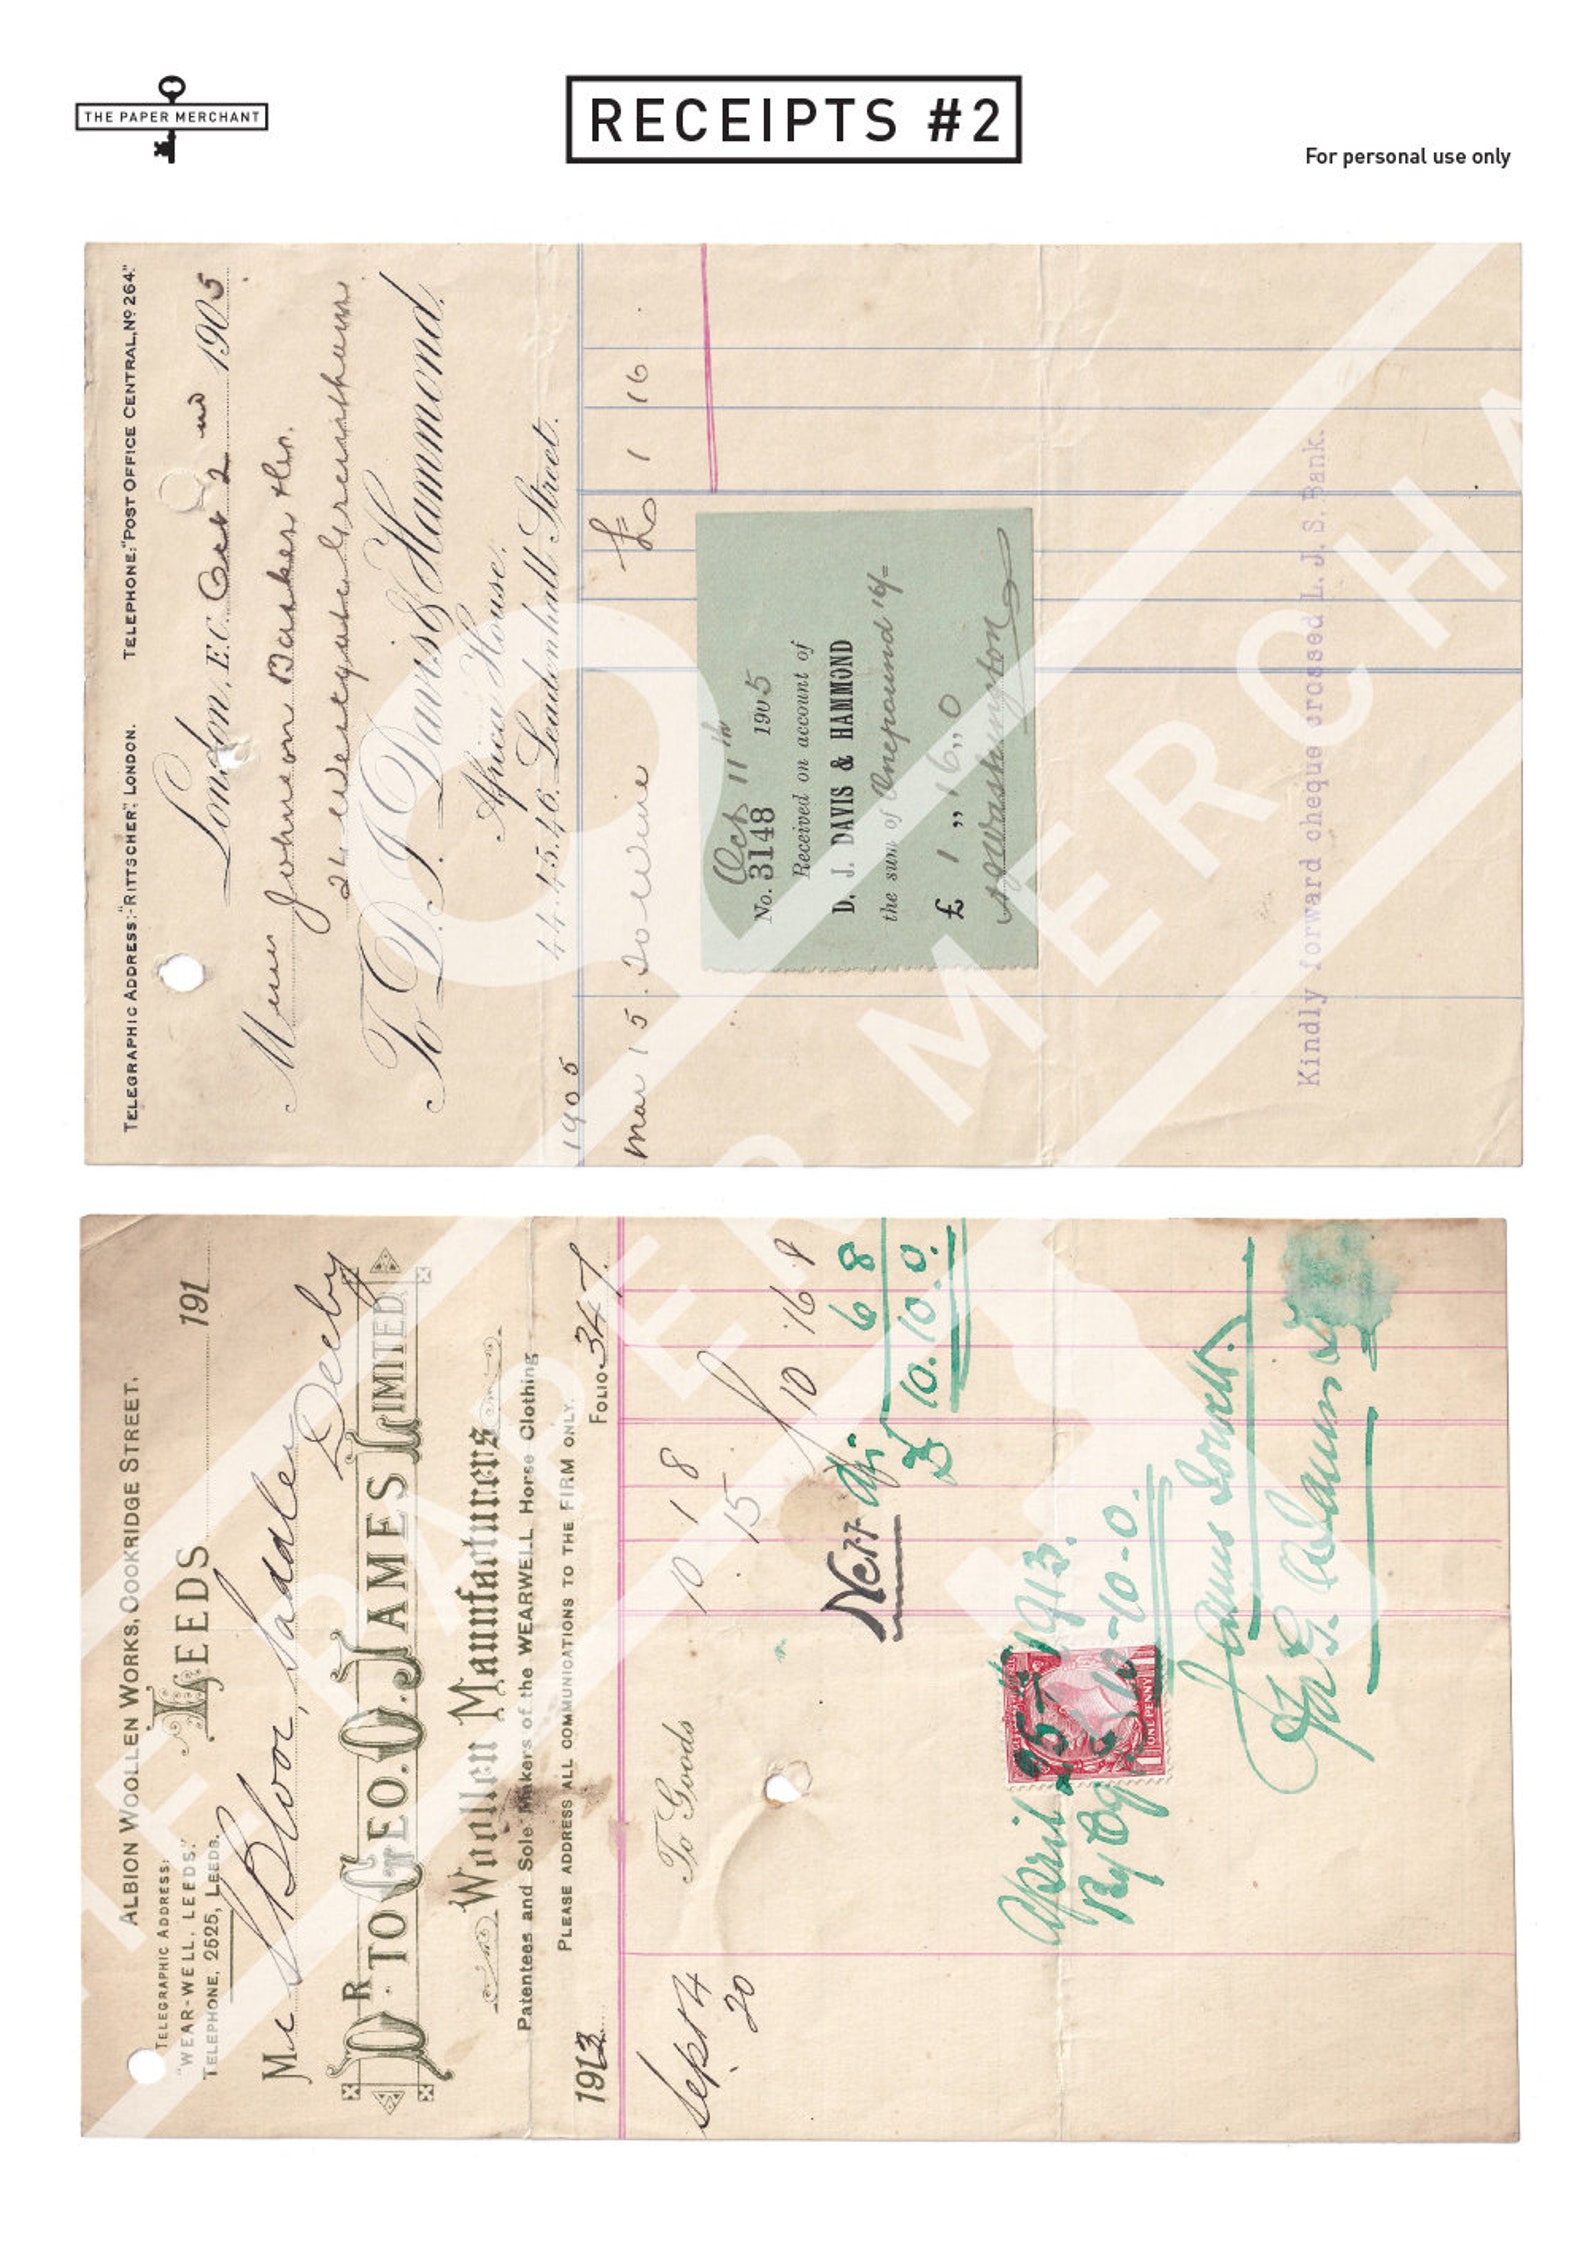 THE PAPER MERCHANT
RECEIPTS #2
For personal use only
TELEGRAPHIC ADDRESS:-"RITTSCHER", LONDON. TELEPHONE: "POST OFFICE CENTRAL, No 264."
London, E.C. Oct 2nd 1905
Johnson Barker
To D. J. Davis & Hammond,
Africa House,
44, 45, 46, Leadenhall Street.
1905
Mar 15. To wine £ 1 16
Oct 11th
No. 3148 1905
Received on account of
D. J. DAVIS & HAMMOND
the sum of One pound 16/=
£ 1 " 16 " 0
Washington
Kindly forward cheque crossed L. J. S. Bank.
ALBION WOOLLEN WORKS, COOKRIDGE STREET.
TELEGRAPHIC ADDRESS:
"WEAR-WELL, LEEDS."
TELEPHONE, 2525, LEEDS.
LEEDS 191
Mr Bloor, Saddler
Dr TO GEO. O. JAMES LIMITED
Woollen Manufacturers
Patentees and Sole Makers of the WEARWELL Horse Clothing
PLEASE ADDRESS ALL COMMUNICATIONS TO THE FIRM ONLY.
1912 FOLIO 347
Sept 4 To Goods 10 1 8
20 15 10 16 8
Nett 6 8
£ 10.10.0.
April 25 1913.
By 10-10-0
ONE PENNY
THE PAPER MERCHA